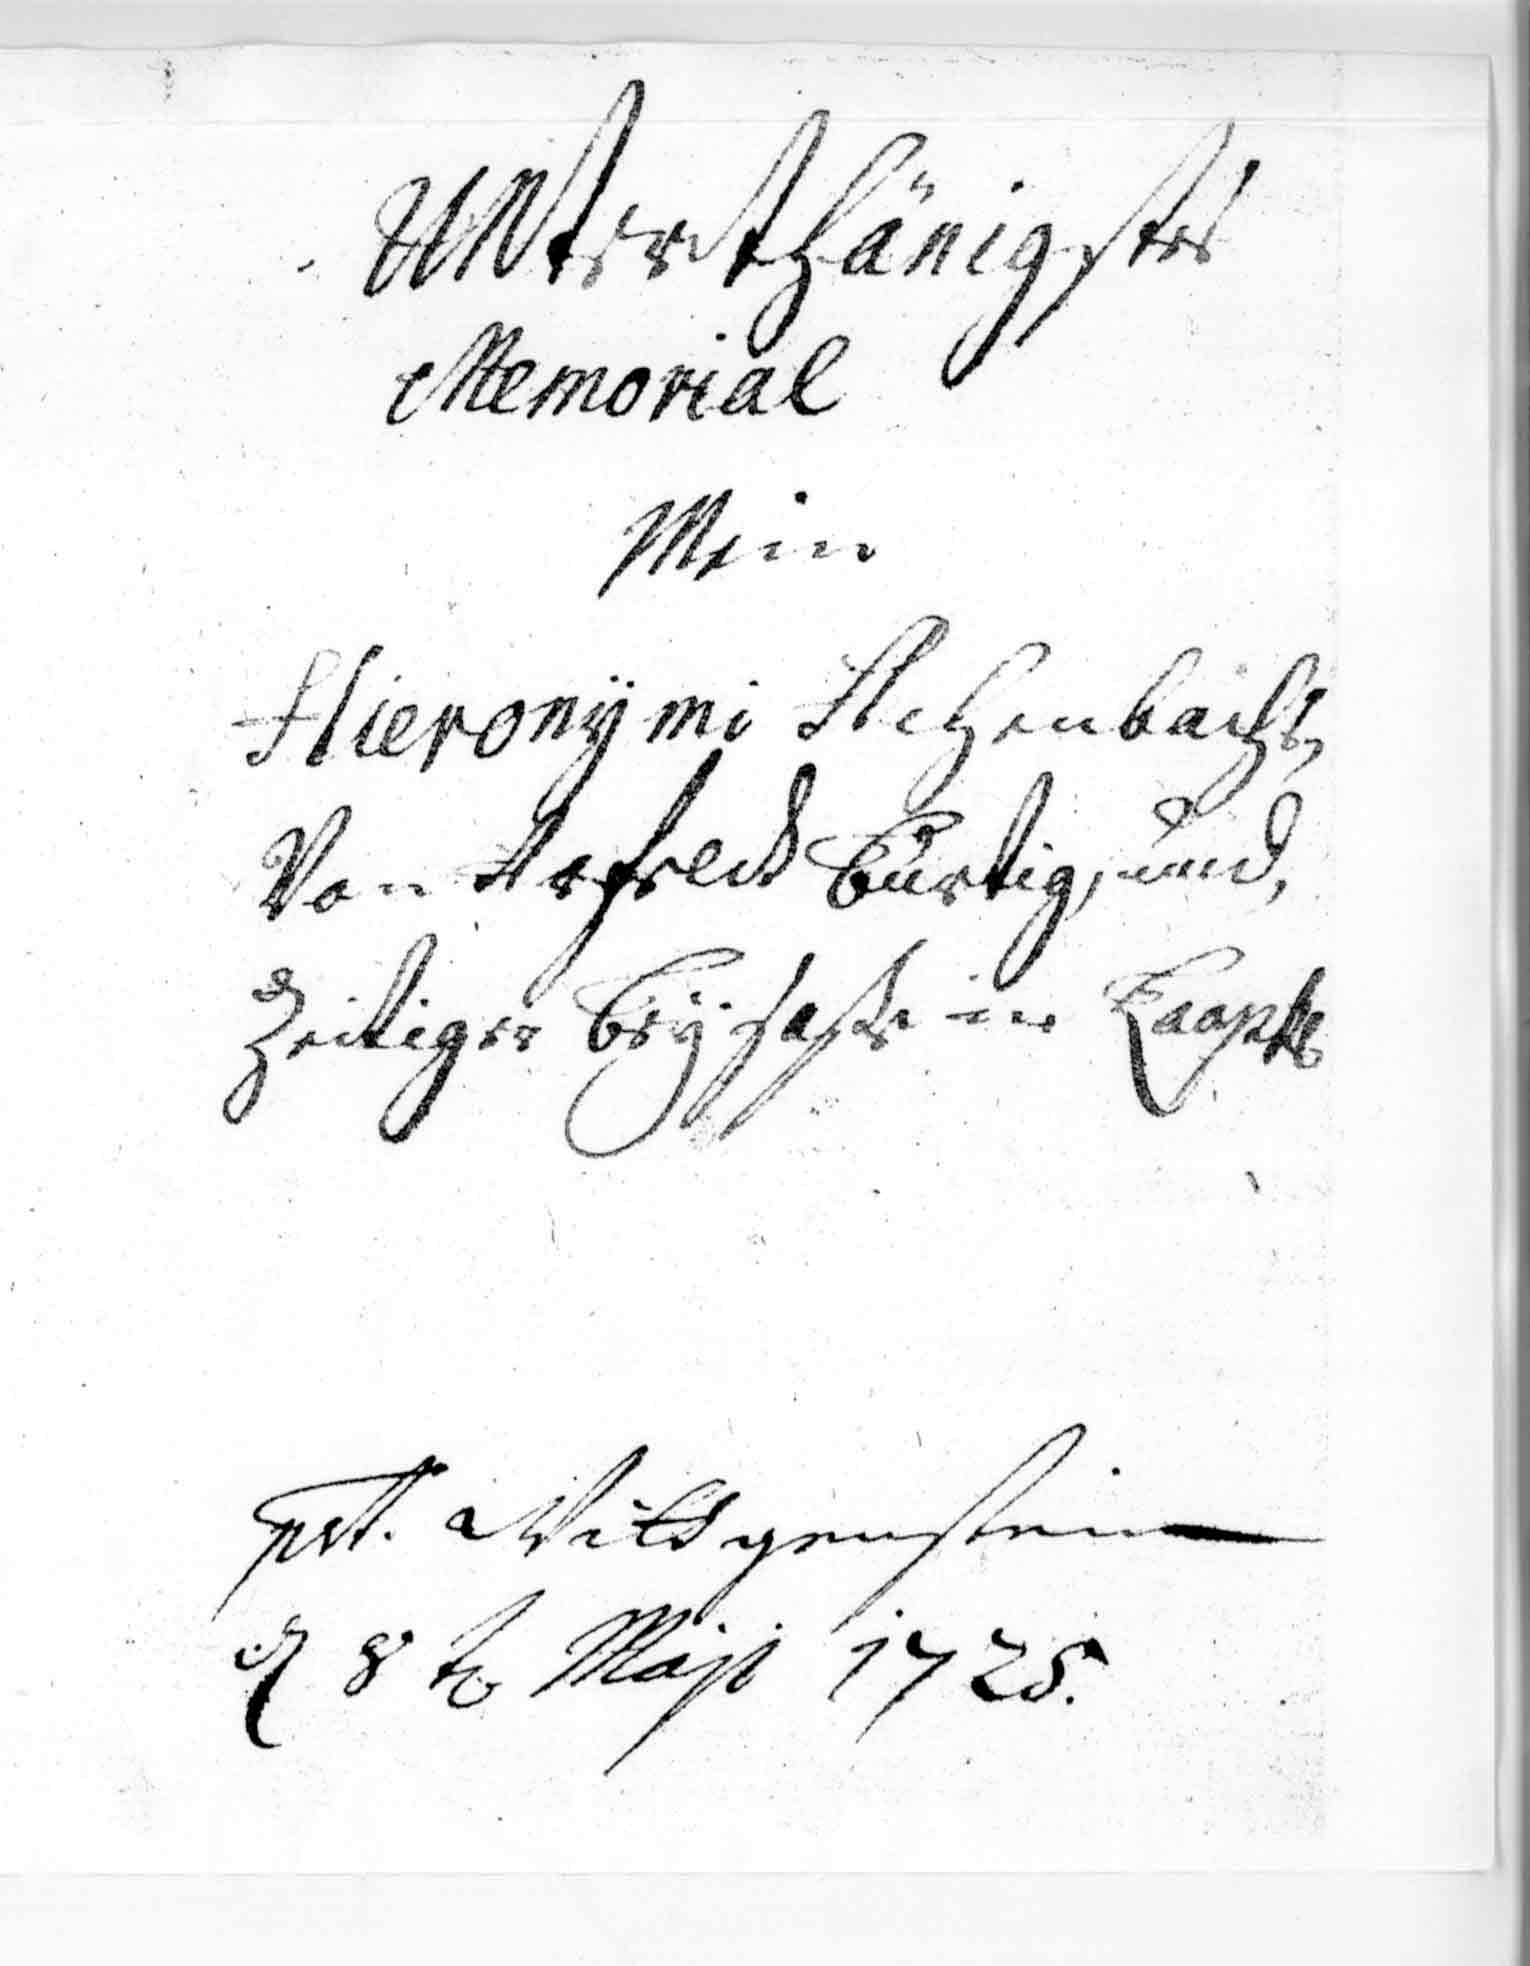 Unterthänigstes
Memorial
Mein
Hieronÿmi Achenbachs,
Von Arfeld bürtig, und,
Zeitiger beÿsasse in Laasphe
prt. Wittgenstein
d 8 t Maji 1725.